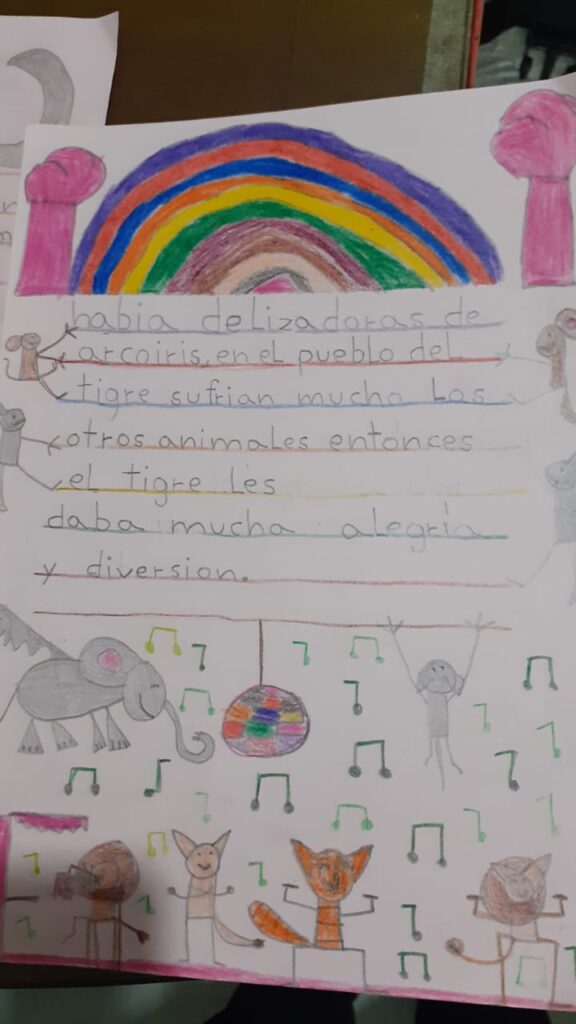 habia delizadoras de
arcoiris, en el pueblo del
tigre sufrian mucho los
otros animales entonces
el tigre les
daba mucha alegría
y diversion.